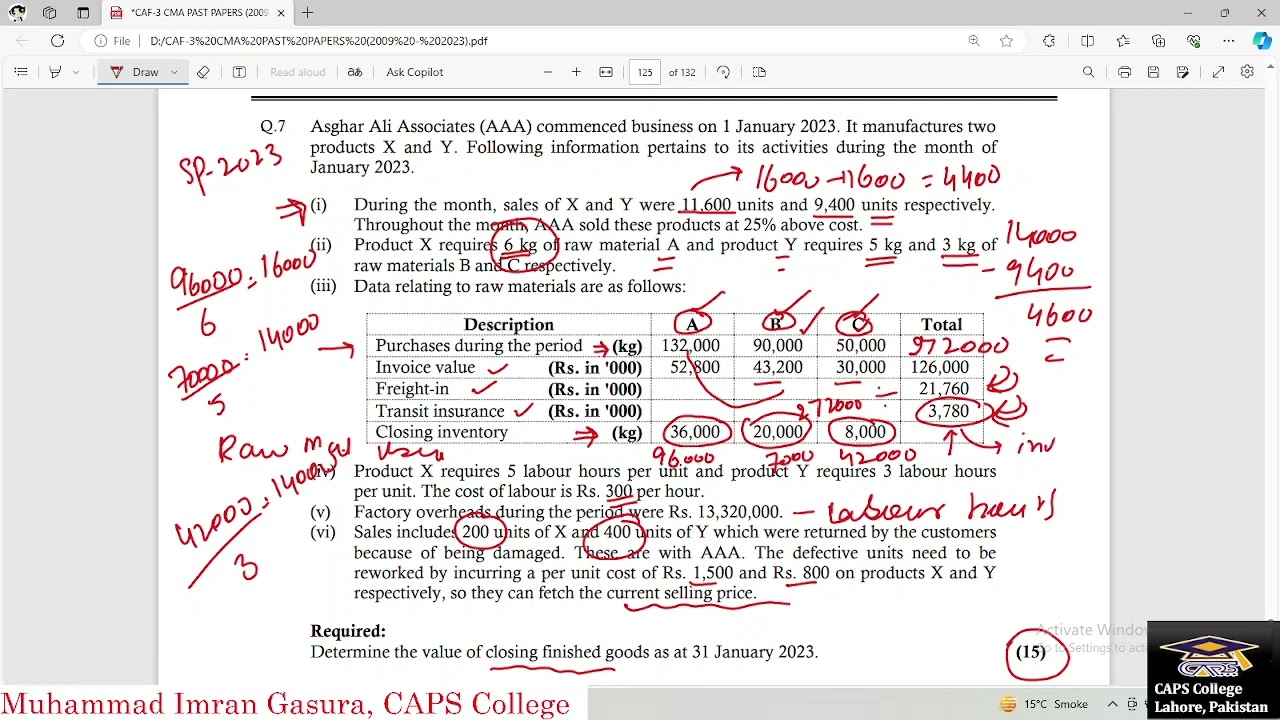 *CAF-3 CMA PAST PAPERS (2009
File D:/CAF-3%20CMA%20PAST%20PAPERS%20(2009%20-%202023).pdf
Draw Read aloud Ask Copilot 125 of 132
Q.7 Asghar Ali Associates (AAA) commenced business on 1 January 2023. It manufactures two
products X and Y. Following information pertains to its activities during the month of
January 2023.
SP-2023
16000-11600 = 4400
(i) During the month, sales of X and Y were 11,600 units and 9,400 units respectively.
Throughout the month, AAA sold these products at 25% above cost.
(ii) Product X requires 6 kg of raw material A and product Y requires 5 kg and 3 kg of
raw materials B and C respectively.
14000
- 9400
4600
96000 = 16000
6
(iii) Data relating to raw materials are as follows:
70000 = 14000
5
Description A B C Total
Purchases during the period (kg) 132,000 90,000 50,000 972000
Invoice value (Rs. in '000) 52,800 43,200 30,000 126,000
Freight-in (Rs. in '000) 21,760
Transit insurance (Rs. in '000) 3,780
272000
Closing inventory (kg) 36,000 20,000 8,000
Raw
96000 7000 42000 inv
(iv) Product X requires 5 labour hours per unit and product Y requires 3 labour hours
per unit. The cost of labour is Rs. 300 per hour.
42000 = 14000
3
(v) Factory overheads during the period were Rs. 13,320,000. - Labour hours
(vi) Sales includes 200 units of X and 400 units of Y which were returned by the customers
because of being damaged. These are with AAA. The defective units need to be
reworked by incurring a per unit cost of Rs. 1,500 and Rs. 800 on products X and Y
respectively, so they can fetch the current selling price.
Required:
Determine the value of closing finished goods as at 31 January 2023. (15)
Activate Windo
to Settings to acti
CAPS
CAPS College
Lahore, Pakistan
Muhammad Imran Gasura, CAPS College
15°C Smoke